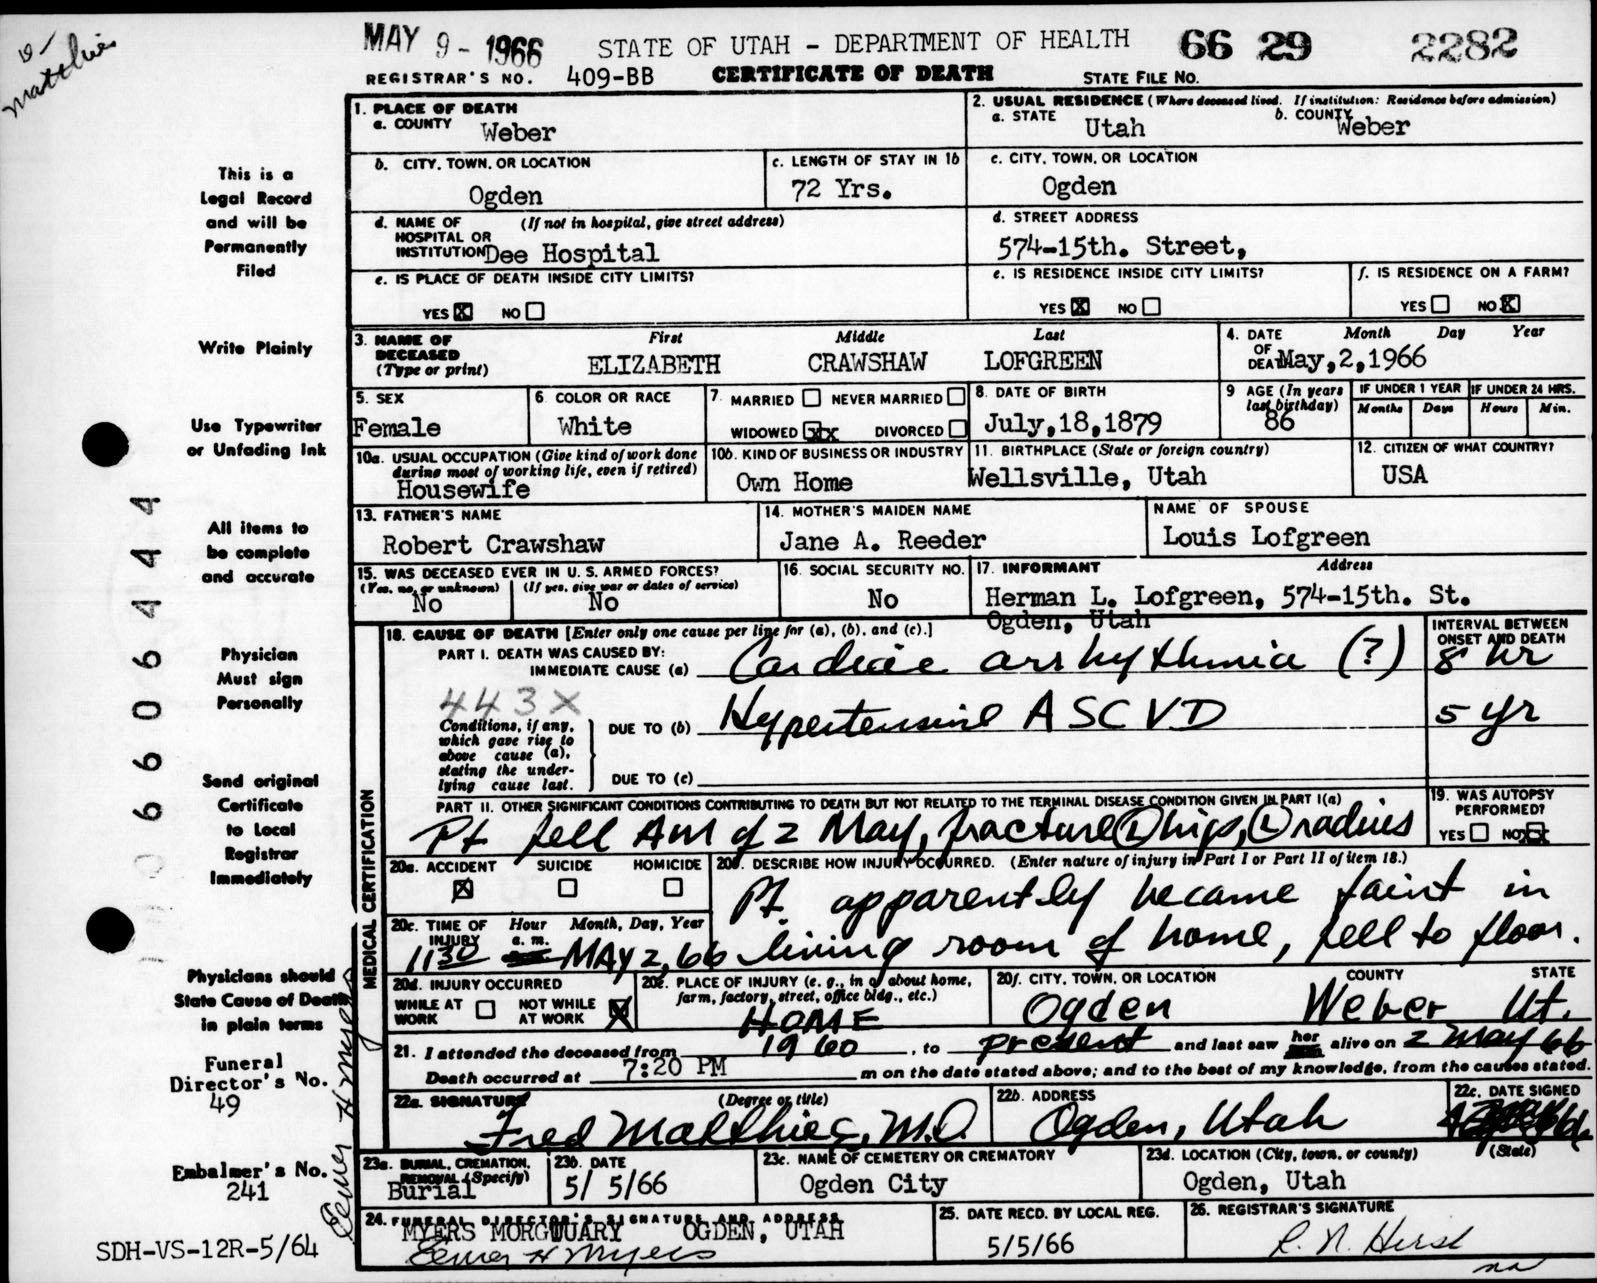 MAY 9 - 1966 STATE OF UTAH - DEPARTMENT OF HEALTH 66 29 2282
REGISTRAR'S NO. 409-BB CERTIFICATE OF DEATH STATE FILE NO.
Matthies
1. PLACE OF DEATH
a. COUNTY Weber
2. USUAL RESIDENCE (Where deceased lived. If institution: Residence before admission)
a. STATE Utah b. COUNTY Weber
b. CITY, TOWN, OR LOCATION Ogden
c. LENGTH OF STAY IN 1b 72 Yrs.
c. CITY, TOWN, OR LOCATION Ogden
d. NAME OF HOSPITAL OR INSTITUTION (If not in hospital, give street address) Dee Hospital
d. STREET ADDRESS 574-15th. Street,
e. IS PLACE OF DEATH INSIDE CITY LIMITS?
YES X NO
e. IS RESIDENCE INSIDE CITY LIMITS?
YES X NO
f. IS RESIDENCE ON A FARM?
YES NO X
3. NAME OF DECEASED (Type or print) First Middle Last
ELIZABETH CRAWSHAW LOFGREEN
4. DATE OF DEATH Month Day Year
May,2,1966
5. SEX Female
6 COLOR OR RACE White
7. MARRIED NEVER MARRIED
WIDOWED XX DIVORCED
8. DATE OF BIRTH July,18,1879
9 AGE (In years last birthday) 86
IF UNDER 1 YEAR Months Days
IF UNDER 24 HRS. Hours Min.
10a. USUAL OCCUPATION (Give kind of work done during most of working life, even if retired) Housewife
10b. KIND OF BUSINESS OR INDUSTRY Own Home
11. BIRTHPLACE (State or foreign country) Wellsville, Utah
12. CITIZEN OF WHAT COUNTRY? USA
13. FATHER'S NAME Robert Crawshaw
14. MOTHER'S MAIDEN NAME Jane A. Reeder
NAME OF SPOUSE Louis Lofgreen
15. WAS DECEASED EVER IN U. S. ARMED FORCES?
(Yes, no, or unknown) No (If yes, give war or dates of service) No
16. SOCIAL SECURITY NO. No
17. INFORMANT Address
Herman L. Lofgreen, 574-15th. St.
Ogden, Utah
18. CAUSE OF DEATH [Enter only one cause per line for (a), (b), and (c).]
INTERVAL BETWEEN ONSET AND DEATH
PART I. DEATH WAS CAUSED BY:
IMMEDIATE CAUSE (a) Cardiac arrhythmia (?) 8 hr
443X
Conditions, if any, which gave rise to above cause (a), stating the underlying cause last.
DUE TO (b) Hypertensive ASCVD 5 yr
DUE TO (c)
PART II. OTHER SIGNIFICANT CONDITIONS CONTRIBUTING TO DEATH BUT NOT RELATED TO THE TERMINAL DISEASE CONDITION GIVEN IN PART I(a)
Pt fell AM of 2 May, fracture (L) hip, (L) radius
19. WAS AUTOPSY PERFORMED?
YES NO X
20a. ACCIDENT X SUICIDE HOMICIDE
20b. DESCRIBE HOW INJURY OCCURRED. (Enter nature of injury in Part I or Part II of item 18.)
Pt. apparently became faint in
living room of home, fell to floor.
20c. TIME OF INJURY Hour a. m. Month, Day, Year
1130 MAY 2, 66
20d. INJURY OCCURRED
WHILE AT WORK NOT WHILE AT WORK X
20e. PLACE OF INJURY (e. g., in or about home, farm, factory, street, office bldg., etc.)
HOME
20f. CITY, TOWN, OR LOCATION COUNTY STATE
Ogden Weber Ut.
21. I attended the deceased from 1960, to present and last saw her alive on 2 May 66
Death occurred at 7:20 PM m on the date stated above; and to the best of my knowledge, from the causes stated.
22a. SIGNATURE (Degree or title)
Fred Matthies, M.D.
22b. ADDRESS
Ogden, Utah
22c. DATE SIGNED
23a. BURIAL, CREMATION, REMOVAL (Specify) Burial
23b. DATE 5/ 5/66
23c. NAME OF CEMETERY OR CREMATORY Ogden City
23d. LOCATION (City, town, or county) (State) Ogden, Utah
24. FUNERAL DIRECTOR'S SIGNATURE AND ADDRESS
MYERS MORGUUARY OGDEN, UTAH
Elmer H Myers
25. DATE RECD. BY LOCAL REG. 5/5/66
26. REGISTRAR'S SIGNATURE
MEDICAL CERTIFICATION
Elmer H Myers
This is a
Legal Record
and will be
Permanently
Filed
Write Plainly
Use Typewriter
or Unfading Ink
All items to
be complete
and accurate
Physician
Must sign
Personally
Send original
Certificate
to Local
Registrar
Immediately
Physicians should
State Cause of Death
in plain terms
Funeral
Director's No.
49
Embalmer's No.
241
SDH-VS-12R-5/64